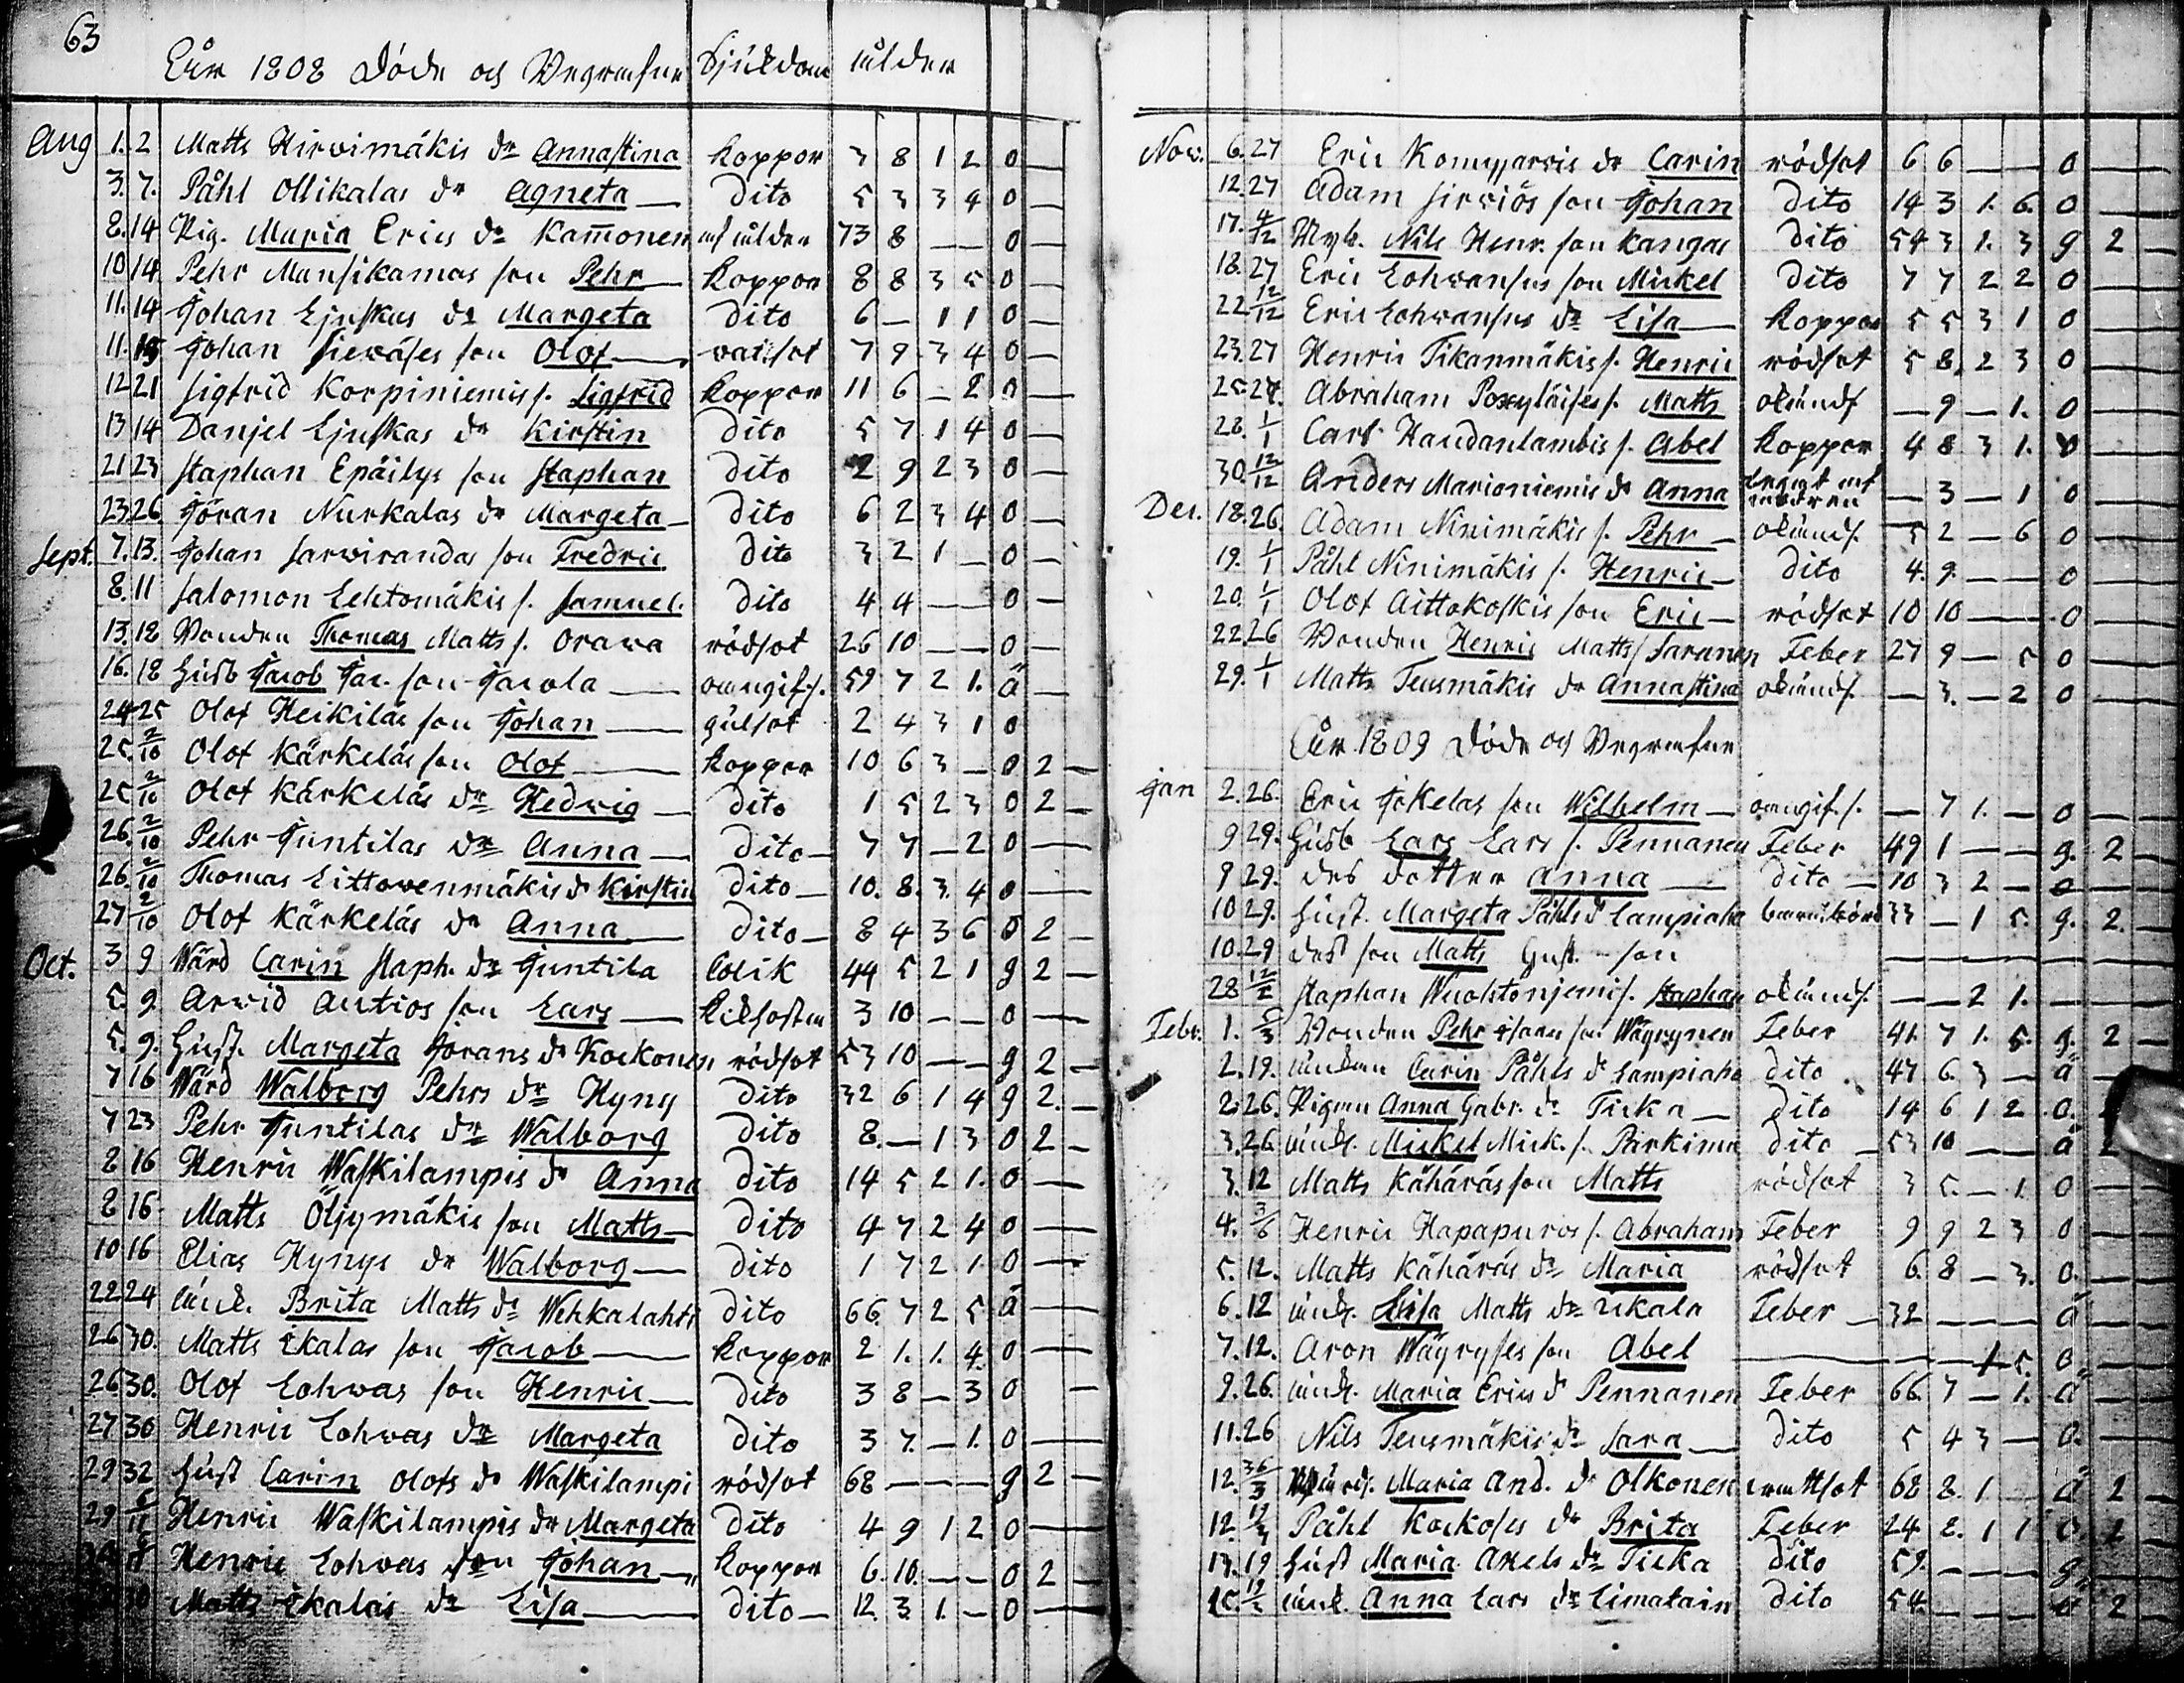 63
Åhr 1808 Döde och Begrafne Sjukdom ålder
Aug 1. 2 Matts Hirvimäkis dr Annastina koppor 3 8 1 2 0
3. 7. Påhl Ollikalas dr Agneta dito 5 3 3 4 0
8. 14 Pig. Maria Erics dr Kamonen af ålder 73 8 — — 0
10 14 Pehr Mansikamas son Pehr koppor 8 8 3 5 0
11. 14 Johan Ljuskas dr Margeta dito 6 — 1 1 0
11. 15 Johan Sieväses son Olof vatsot 7 9 3 4 0
12 21 Sigfrid Korpiniemis s. Sigfrid koppor 11 6 — 2 0
13 14 Danjel Ljuskas dr Kirstin dito 5 7 1 4 0
21 23 Staphan Epäilys son Staphan dito 2 9 2 3 0
23 26 Göran Nurkalas dr Margeta dito 6 2 3 4 0
Sept. 7. 13. Johan Sarvirandas son Fredric dito 3 2 1 — 0
8. 11 Salomon Lehtomäkis s. Samuel dito 4 4 — — 0
13. 18 Bonden Thomas Matts s. Orava rödsot 26 10 — — 0
16. 18 Husb Jacob Jac. son Jacola oangif. s. 59 7 2 1. ä
24 25 Olof Heikiläs son Johan gulsot 2 4 3 1 0
25. 2/10 Olof Kärkeläs son Olof koppor 10 6 3 — 0 2
25 2/10 Olof Kärkeläs dr Hedvig dito 1 5 2 3 0 2
26. 2/10 Pehr Juntilas dr Anna dito 7 7 — 2 0
26. 2/10 Thomas Littowenmäkis d Kirstin dito 10. 8. 3. 4 0
27 2/10 Olof Kärkeläs dr Anna dito 8 4 3 6 0 2
Oct. 3 9 Wärd Carin Staph. dr Juntila Colik 44 5 2 1 g 2
5. 9. Arvid Autios son Lars kikhosta 3 10 — — 0
5. 9. Hust. Margeta Görans dr Kockonen rödsot 53 10 — — g 2
7 16 Wärd Walborg Pehrs dr Hyny dito 32 6 1 4 g 2.
7 23 Pehr Juntilas dr Walborg dito 8. — 1 3 0 2
8 16 Henric Waskilampis dr Anna dito 14 5 2 1. 0
8 16 Matts Öljymäkis son Matts dito 4 7 2 4 0
10 16 Elias Hynys dr Walborg dito 1 7 2 1. 0
22 24 änk. Brita Matts dr Wehkalahti dito 66. 7 2 5 ä
26 30. Matts Ekalas son Jacob koppor 2 1. 1. 4. 0
26 30. Olof Lohvas son Henric dito 3 8 — 3 0
27 30 Henric Lohvas dr Margeta dito 3 7. — 1. 0
29 32 Hust Carin Olofs dr Waskilampi rödsot 68 — — — g 2
29 Henric Waskilampis dr Margeta dito 4 9 1 2 0
Henric Lohvas son Johan koppor 6. 10. — — 0 2
Matts Ekalas dr Lisa dito 12. 3 1. — 0
Nov. 6. 27 Eric Komujarvis dr Carin rödsot 6 6 — — 0
12. 27 Adam Sirviös son Johan dito 14 3 1. 6. 0
17. 4/12 Nyb. Nils Henr. son Kangas dito 54 3 1. 3 g 2
18. 27 Eric Lohvanses son Mickel dito 7 7 2 2 0
22 12/12 Eric Lohvanses dr Lisa koppor 5 5 3 1 0
23. 27 Henric Tikanmäkis s. Henric rödsot 5 8 2 3 0
25 27. Abraham Posyläises s. Matts okänd s. — 9 — 1. 0
28. 1/1 Carl Haudanlambis s. Abel koppor 4 8 3 1. 0
30. 12/12 Anders Marioniemis dr Anna qwaft af modren — 3 — 1 0
Dec. 18. 26. Adam Ninimäkis s. Pehr okänd s. 5 2 — 6 0
19. 1/1 Påhl Ninimäkis s. Henric dito 4. 9. — — 0
20. 1/1 Olof Aittokoskis son Eric rödsot 10 10 — — 0
22. 26 Bonden Henric Matts s Saranen Feber 27 9 — 5 0
29. 1/1 Matts Teusmäkis dr Annastina okänd s. — 3. — 2 0
Åhr 1809 Döde och Begrafne
Jan 2. 26. Eric Jokelas son Wilhelm oangif. s. — 7 1. — 0
9 29. Husb Lars Lars s. Pennanen Feber 49 1 — — g. 2
9 29. des dotter Anna dito 10 3 2 — 0
10 29. Hust. Margeta Påhls d Lampiaho barnsbörd 33 — 1 5. g. 2.
10. 29 dess son Matts Gust. son
28 12/2 Staphan Wuoltonjemis. Staphan okänd s. — — 2 1.
Febr. 1. 5/3 Bonden Pehr Isacs son Wäyrynen Feber 41. 7 1. 5. g. 2
2. 19. änkan Carin Påhls dr Lampiaho dito 47 6. 3 — ä
2. 26. Pigan Anna Gabr. dr Ticka dito 14 6 1 2 0.
3. 26 änk. Mickel Mick. s. Pärkimä dito 53 10 — — ä 2
3. 12 Matts Kähäräs son Matts rödsot 3 5. — 1. 0
4. 3/6 Henric Hapapuros s. Abraham Feber 9 9 2 3 0
5. 12. Matts Kähäräs dr Maria rödsot 6. 8 — 3. 0.
6. 12 änk. Lisa Matts dr Ukala Feber 32 — — — ä
7. 12. Aron Wäyryses son Abel — — 1 5. 0
9. 26. änk. Maria Erics d Pennanen Feber 66. 7 — 1. ä
11. 26 Nils Teusmäkis dr Sara dito 5 4 3 — 0.
12. 26/3 Maria And. dr Olkonen vattsot 68 8. 1 — ä 2
12. Påhl Kockoses dr Brita Feber 24 8. 1 1 0 2
13. 19 Hust Maria Axels dr Ticka dito 59. — — — g.
15. änk. Anna Lars dr Limatain dito 54. — — — ä 2